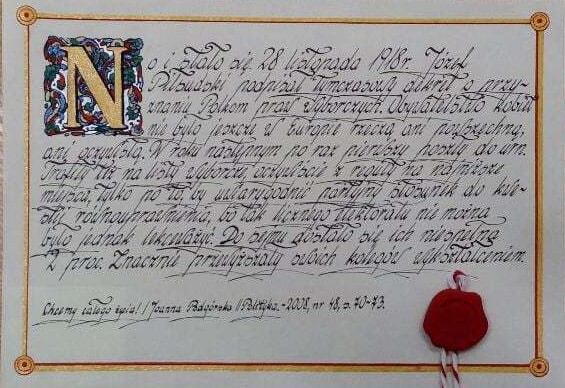 No i stało się 28 listopada 1918r. Józef
Piłsudski podpisał tymczasowy dekret o przy-
znaniu Polkom praw wyborczych. Obywatelstwo kobiet
nie było jeszcze w Europie rzeczą ani powszechną,
ani oczywistą. W roku następnym po raz pierwszy poszły do urn.
Trafiły też na listy wyborcze, oczywiście z reguły na najniższe
miejsca, tylko po to, by uwiarygodnić partyjny stosunek do kwe-
stii równouprawnienia, bo tak licznego elektoratu nie można
było jednak lekceważyć. Do sejmu dostało się ich niespełna
2 proc. Znacznie przewyższały swoich kolegów wykształceniem.
Chcemy całego życia! / Joanna Podgórska // Polityka. - 2008, nr 48, s. 70-73.